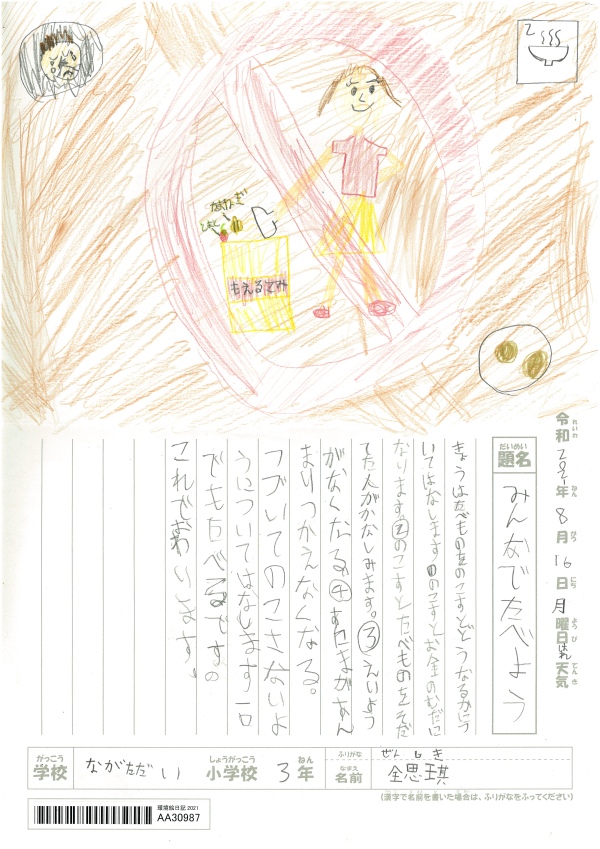 2
たまねぎ
もえるごみ
令和2021年8月16日月曜日はれ天気
れいわ ねん がつ にち ようび てんき
だいめい
題名
みんなでたべよう
きょうはたべものをのこすとどうなるかにつ
いてはなします。①のこすとお金のむだに
なります。②のこすとたべものをそだ
てた人がかなしみます。③えいよう
がなくなる④すにまがあん
まりつかえなくなる。
つづいてのこさないよ
うについてはなします一口
でもたべるですの
これでおわいします。
がっこう
学校
ながただい
しょうがっこう
小学校
3
ねん
年
ふりがな
ぜんしき
なまえ
名前
全思琪
(漢字で名前を書いた場合は、ふりがなをふってください)
環境絵日記2021
AA30987